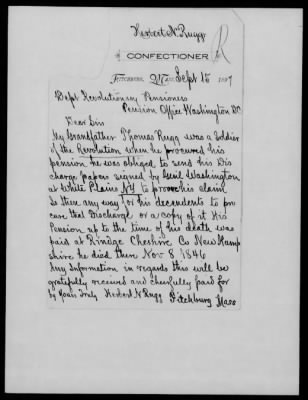 Herbert N. Rugg
CONFECTIONER
R
FITCHBURG, Mass. Sept 15 1897
Dept Revolutionary Pensioners
Pension Office Washington, DC
Dear Sir
My Grandfather Thomas Rugg was a Soldier
of the Revolution when he procured his
pension he was obliged to send his Dis
charge papers signed by Genl Washington
at White Plains NY to prove his claim
Is there any way for his decendents to pro
cure that Discharge or a copy of it His
Pension up to the time of his death was
paid at Rindge Cheshire Co New Hamp
shire he died then Nov 8 1846
Any Information in regards this will be
gratefully received and cheerfully paid for
by Yours Truly Herbert N Rugg Fitchburg Mass